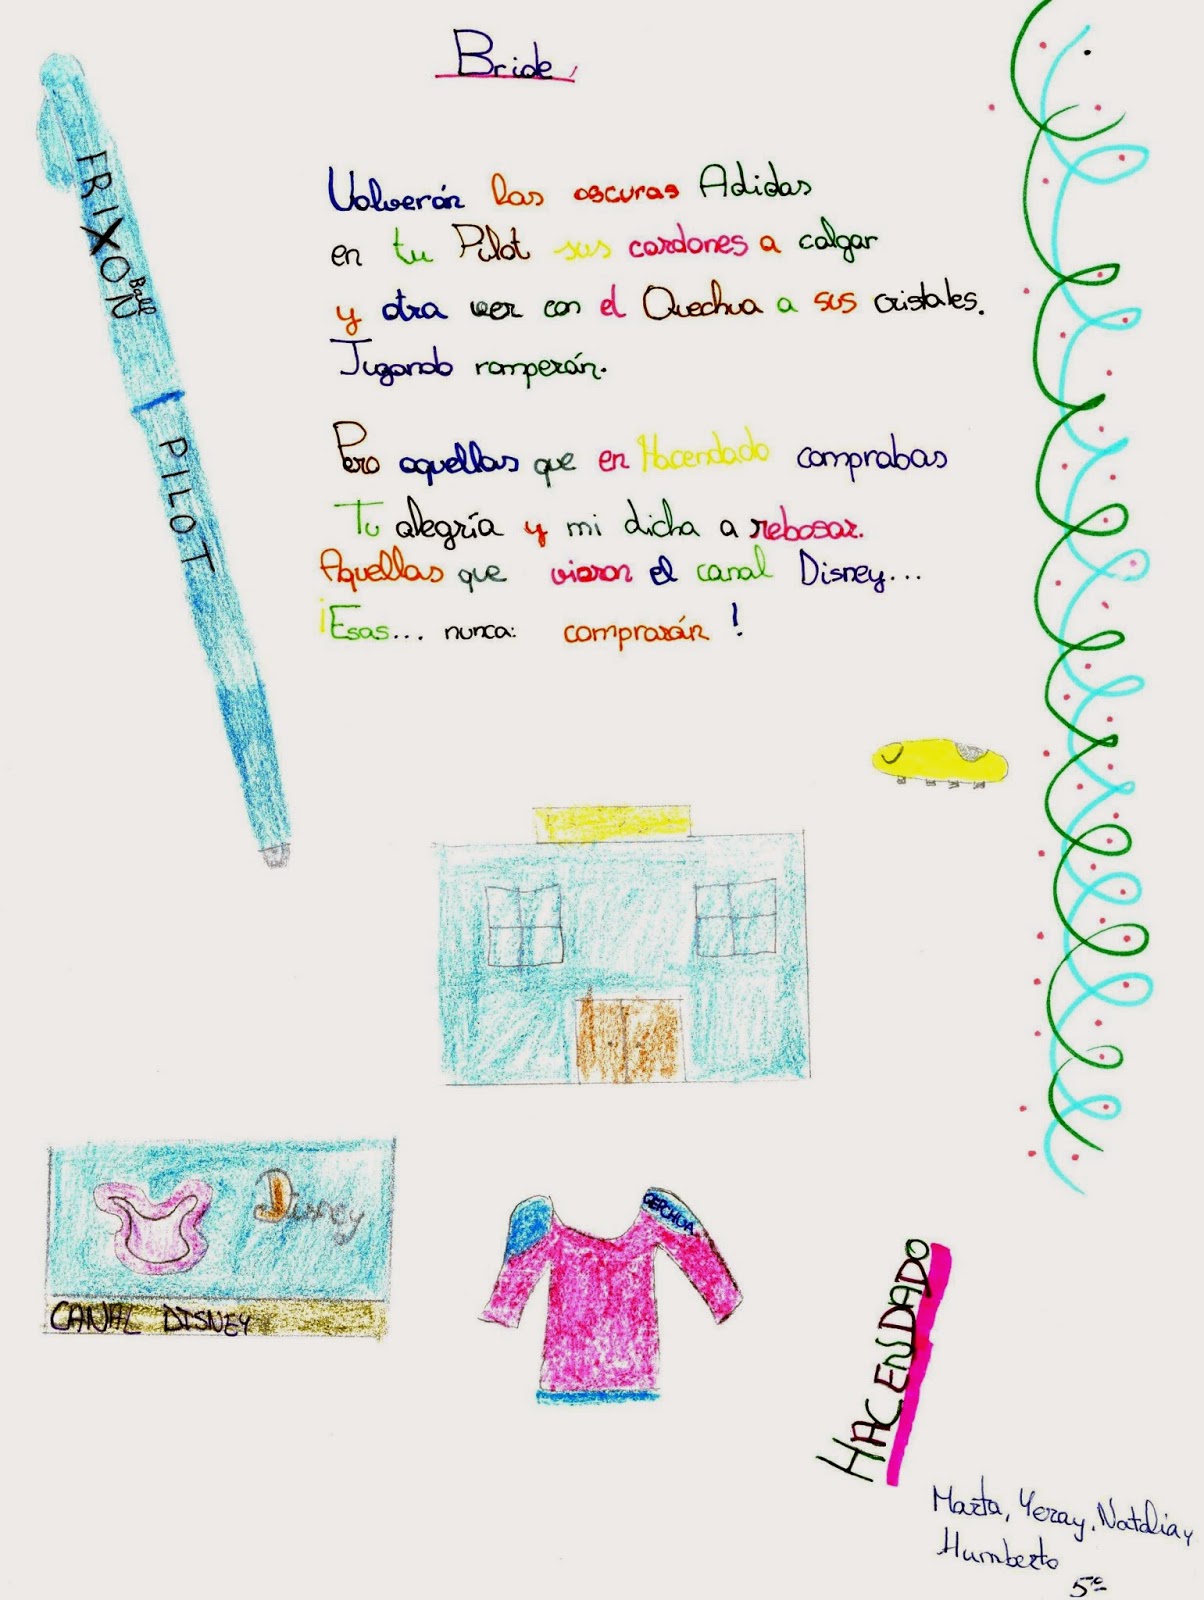 Bride
FRIXON Ball
PILOT
Volverán las oscuras Adidas
en tu Pilot sus cordones a colgar
y otra vez con el Quechua a sus cristales.
Jugando romperán.
Pero aquellas que en Hacendado comprabas
Tu alegría y mi dicha a rebosar.
Aquellas que vieron el canal Disney...
¡Esas... nunca: comprarán!
Disney
CANAL DISNEY
QEPCHUA
HACENDADO
Marta, Yeray, Natalia y
Humberto
5º